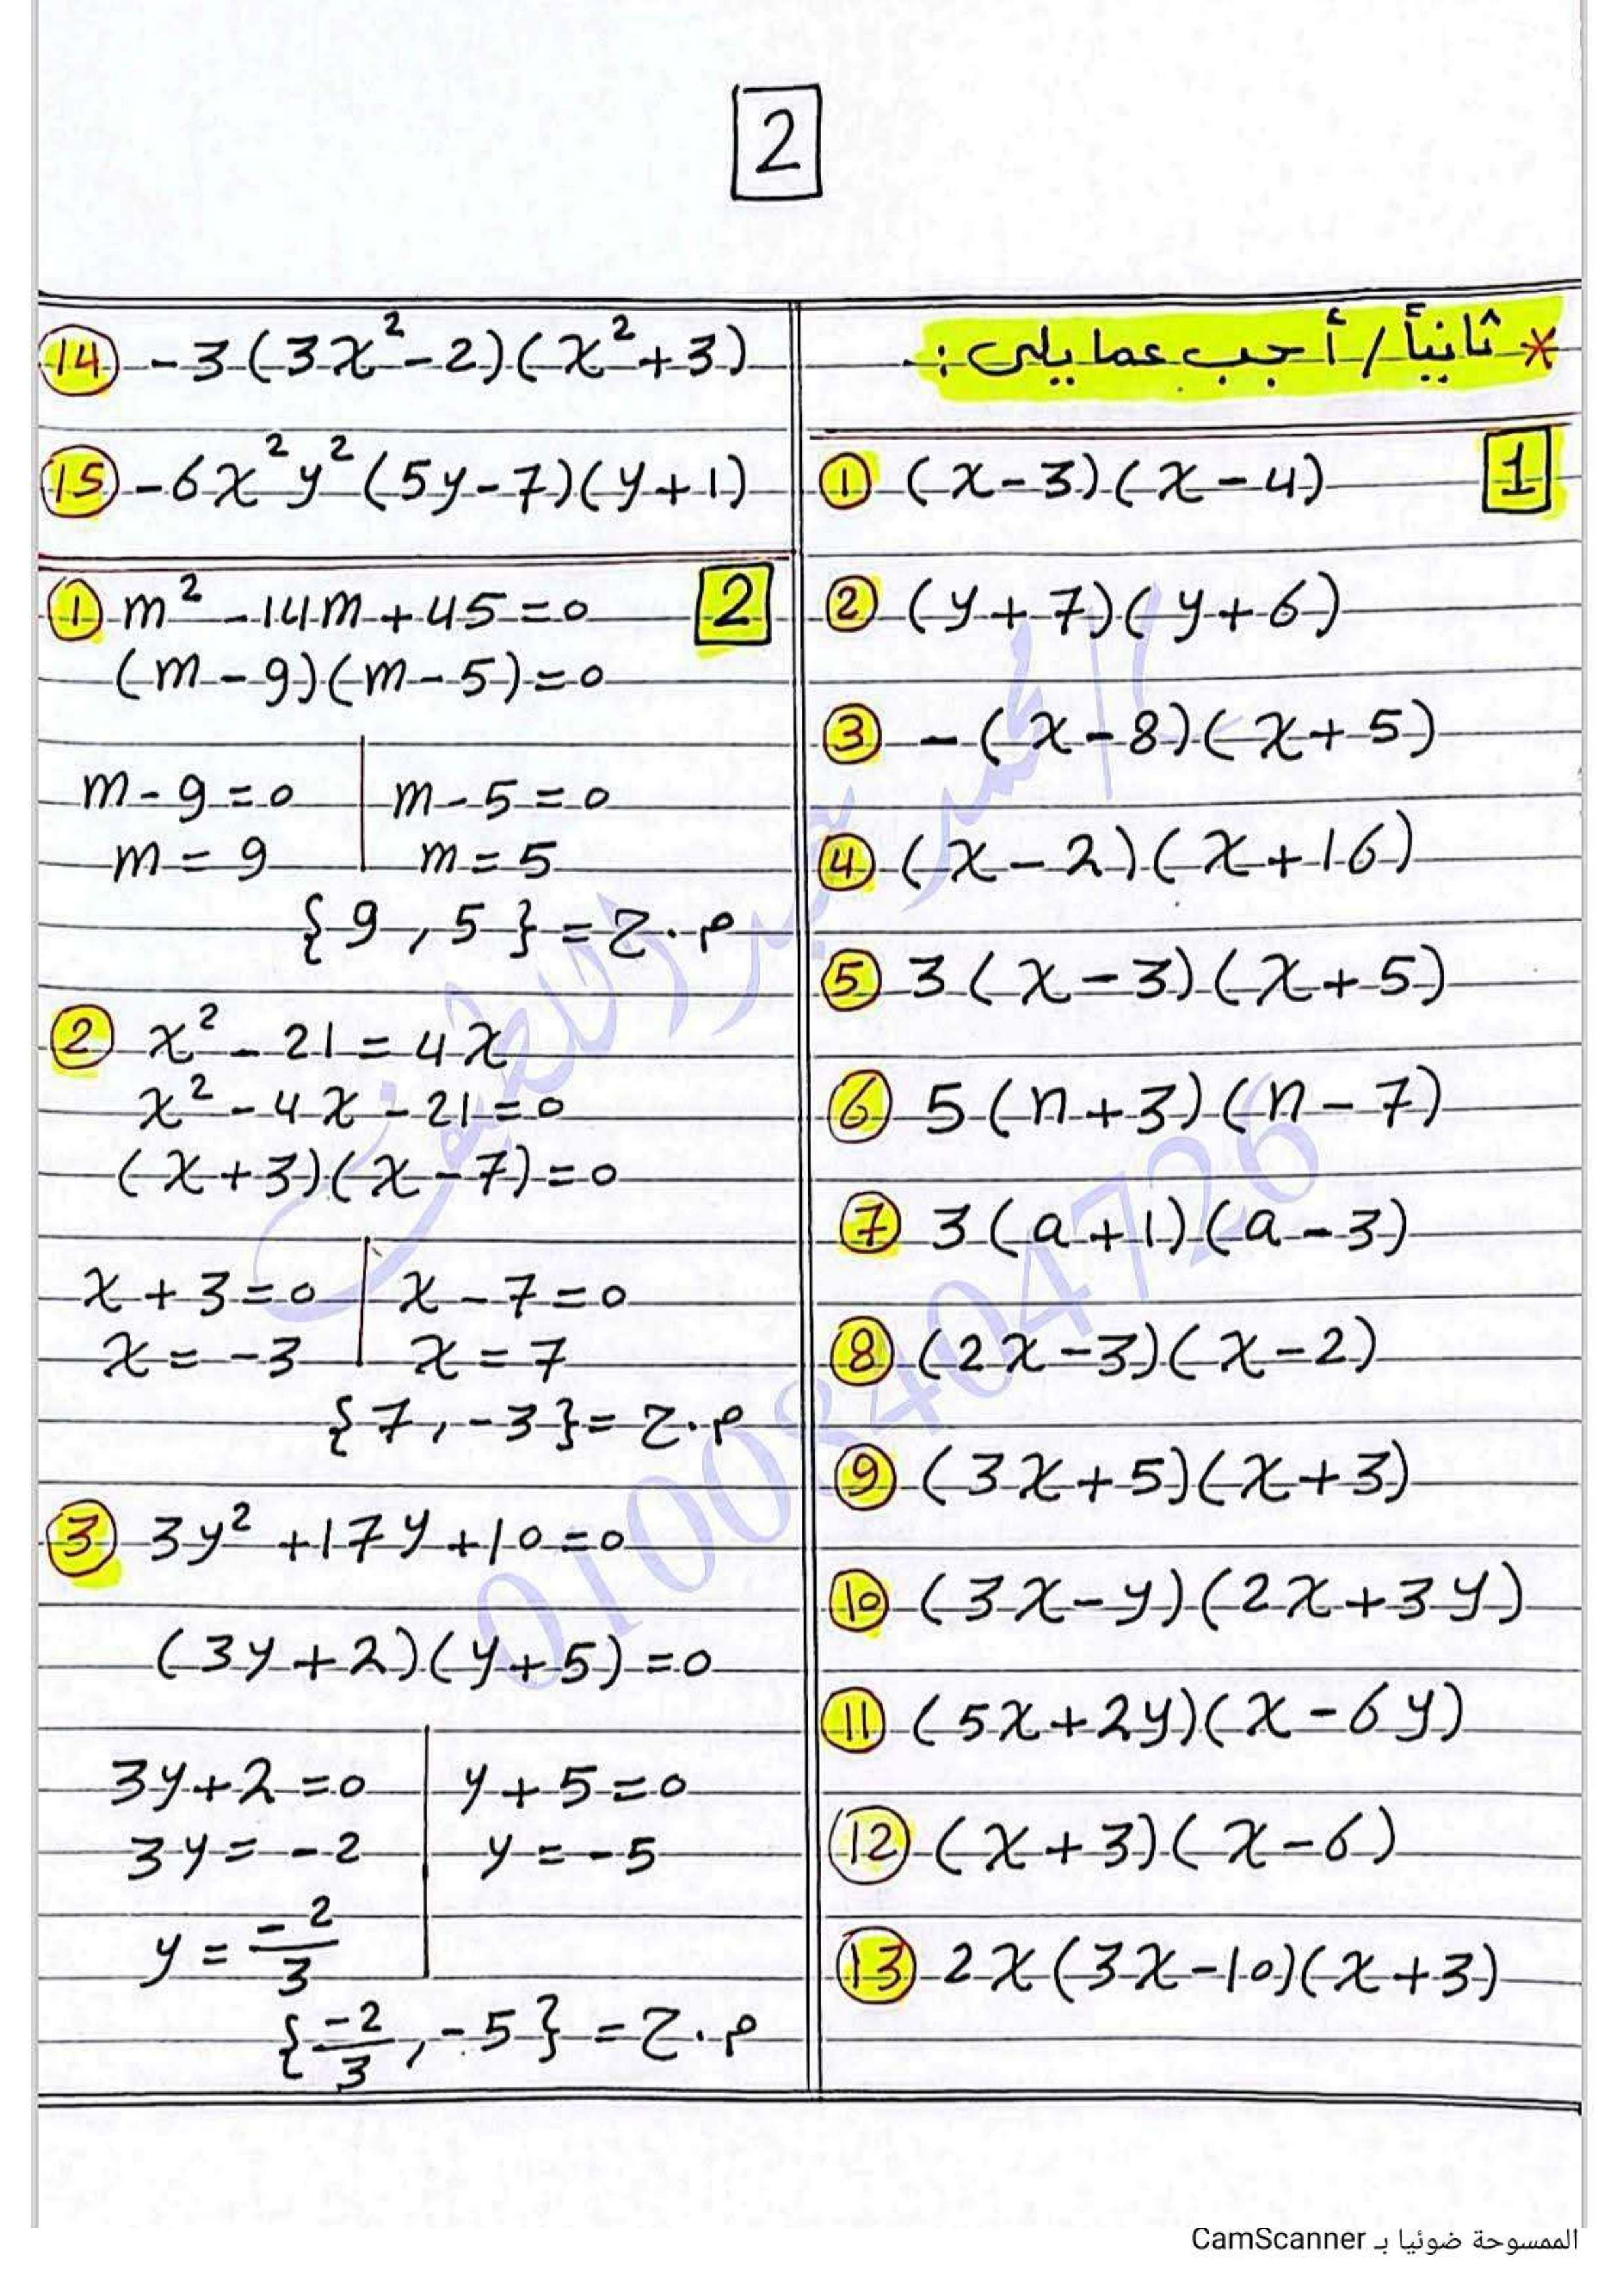 2
* ثانياً / أجب عما يلى :-
1
① (x-3)(x-4)
② (y+7)(y+6)
③ -(x-8)(x+5)
④ (x-2)(x+16)
⑤ 3(x-3)(x+5)
⑥ 5(n+3)(n-7)
⑦ 3(a+1)(a-3)
⑧ (2x-3)(x-2)
⑨ (3x+5)(x+3)
⑩ (3x-y)(2x+3y)
⑪ (5x+2y)(x-6y)
⑫ (x+3)(x-6)
⑬ 2x(3x-10)(x+3)
⑭ -3(3x²-2)(x²+3)
⑮ -6x²y²(5y-7)(y+1)
2
① m²-14m+45=0
(m-9)(m-5)=0
m-9=0 | m-5=0
m=9 | m=5
{9,5} = م.ح
② x²-21=4x
x²-4x-21=0
(x+3)(x-7)=0
x+3=0 | x-7=0
x=-3 | x=7
{7,-3} = م.ح
③ 3y²+17y+10=0
(3y+2)(y+5)=0
3y+2=0 | y+5=0
3y=-2 | y=-5
y=-2/3
{-2/3,-5} = م.ح
01008404726
الممسوحة ضوئيا بـ CamScanner